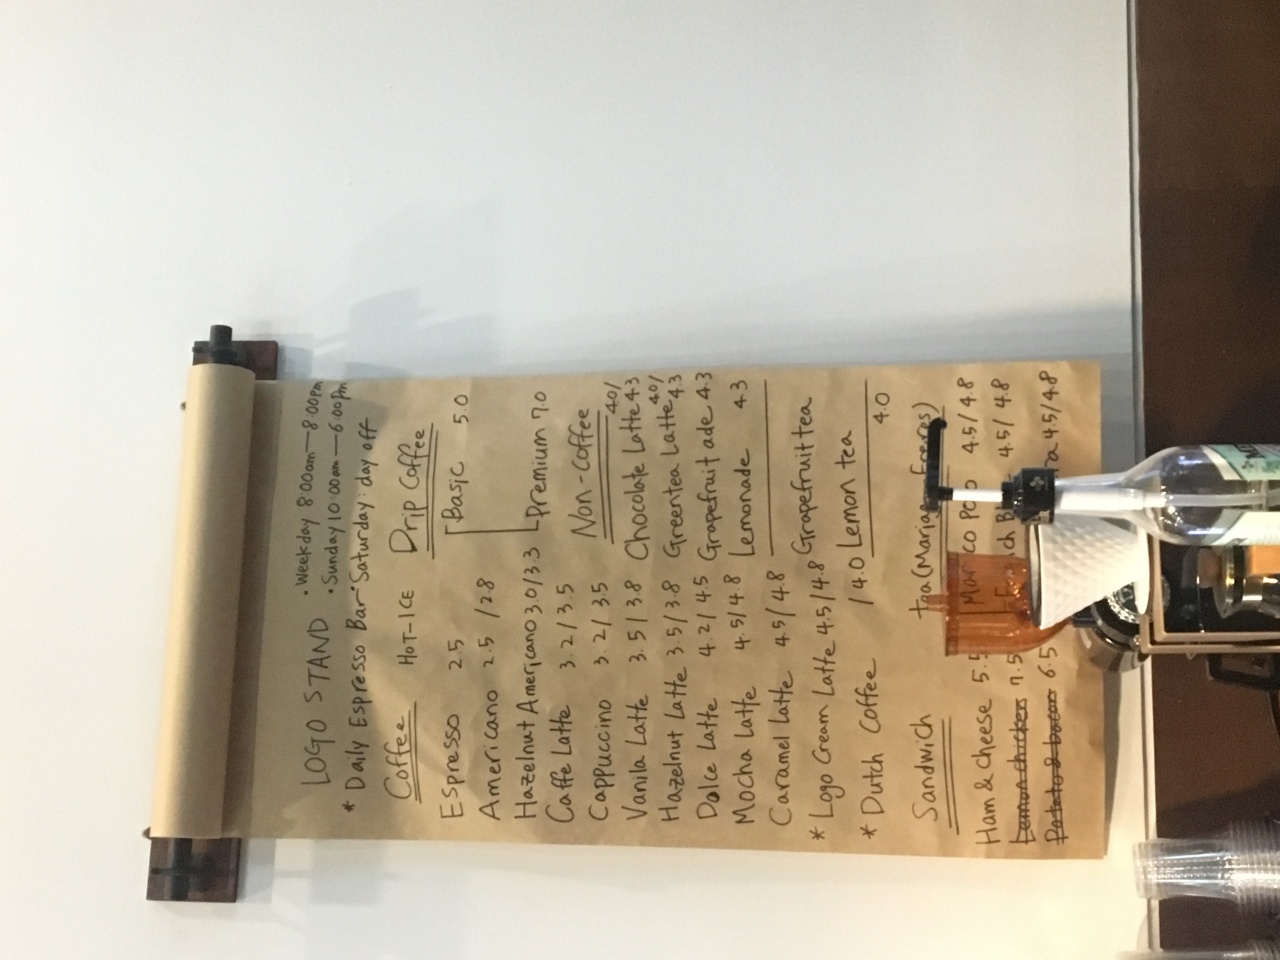 LOGO STAND
* Daily Espresso Bar
· Weekday 8:00am—8:00pm
· Sunday 10:00am—6:00pm
· Saturday: day off
Coffee HOT-ICE
Espresso 2.5
Americano 2.5 / 2.8
Hazelnut Americano 3.0/3.3
Caffe Latte 3.2 / 3.5
Cappuccino 3.2 / 3.5
Vanila Latte 3.5 / 3.8
Hazelnut Latte 3.5 / 3.8
Dolce Latte 4.2 / 4.5
Mocha Latte 4.5/ 4.8
Caramel Latte 4.5/ 4.8
* Logo Cream Latte 4.5/4.8
* Dutch Coffee / 4.0
Drip Coffee
Basic 5.0
Premium 7.0
Non-Coffee
Chocolate Latte 4.0/4.3
Greentea Latte 4.0/4.3
Grapefruit ade 4.3
Lemonade 4.3
Grapefruit tea
Lemon tea
4.0
Sandwich
Ham & cheese 5.5
Lemon chicken 7.5
Potato & bacon 6.5
Marco Polo 4.5/ 4.8
4.5/ 4.8
4.5/4.8